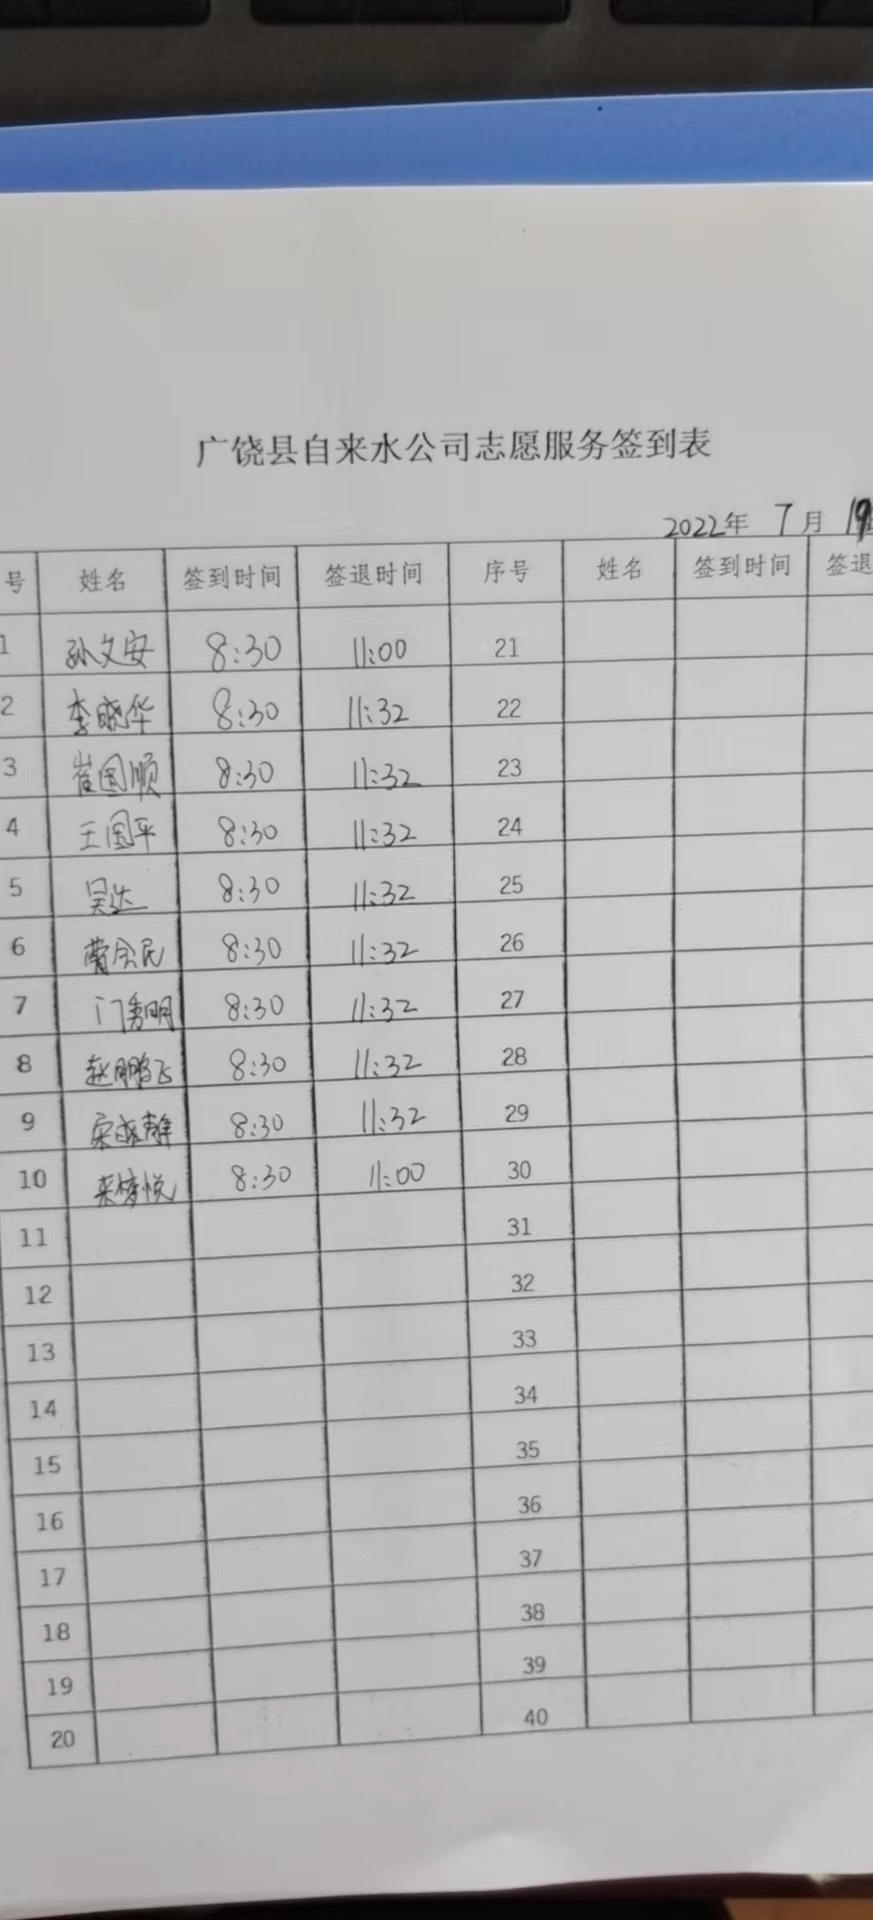 广饶县自来水公司志愿服务签到表
2022年 7月 19
号 姓名 签到时间 签退时间 序号 姓名 签到时间 签退
1 孙文安 8:30 11:00 21
2 李晓华 8:30 11:32 22
3 崔国顺 8:30 11:32 23
4 王国平 8:30 11:32 24
5 吴达 8:30 11:32 25
6 曹会民 8:30 11:32 26
7 门秀明 8:30 11:32 27
8 赵鹏飞 8:30 11:32 28
9 8:30 11:32 29
10 8:30 11:00 30
11 31
12 32
13 33
14 34
15 35
16 36
17 37
18 38
19 39
20 40